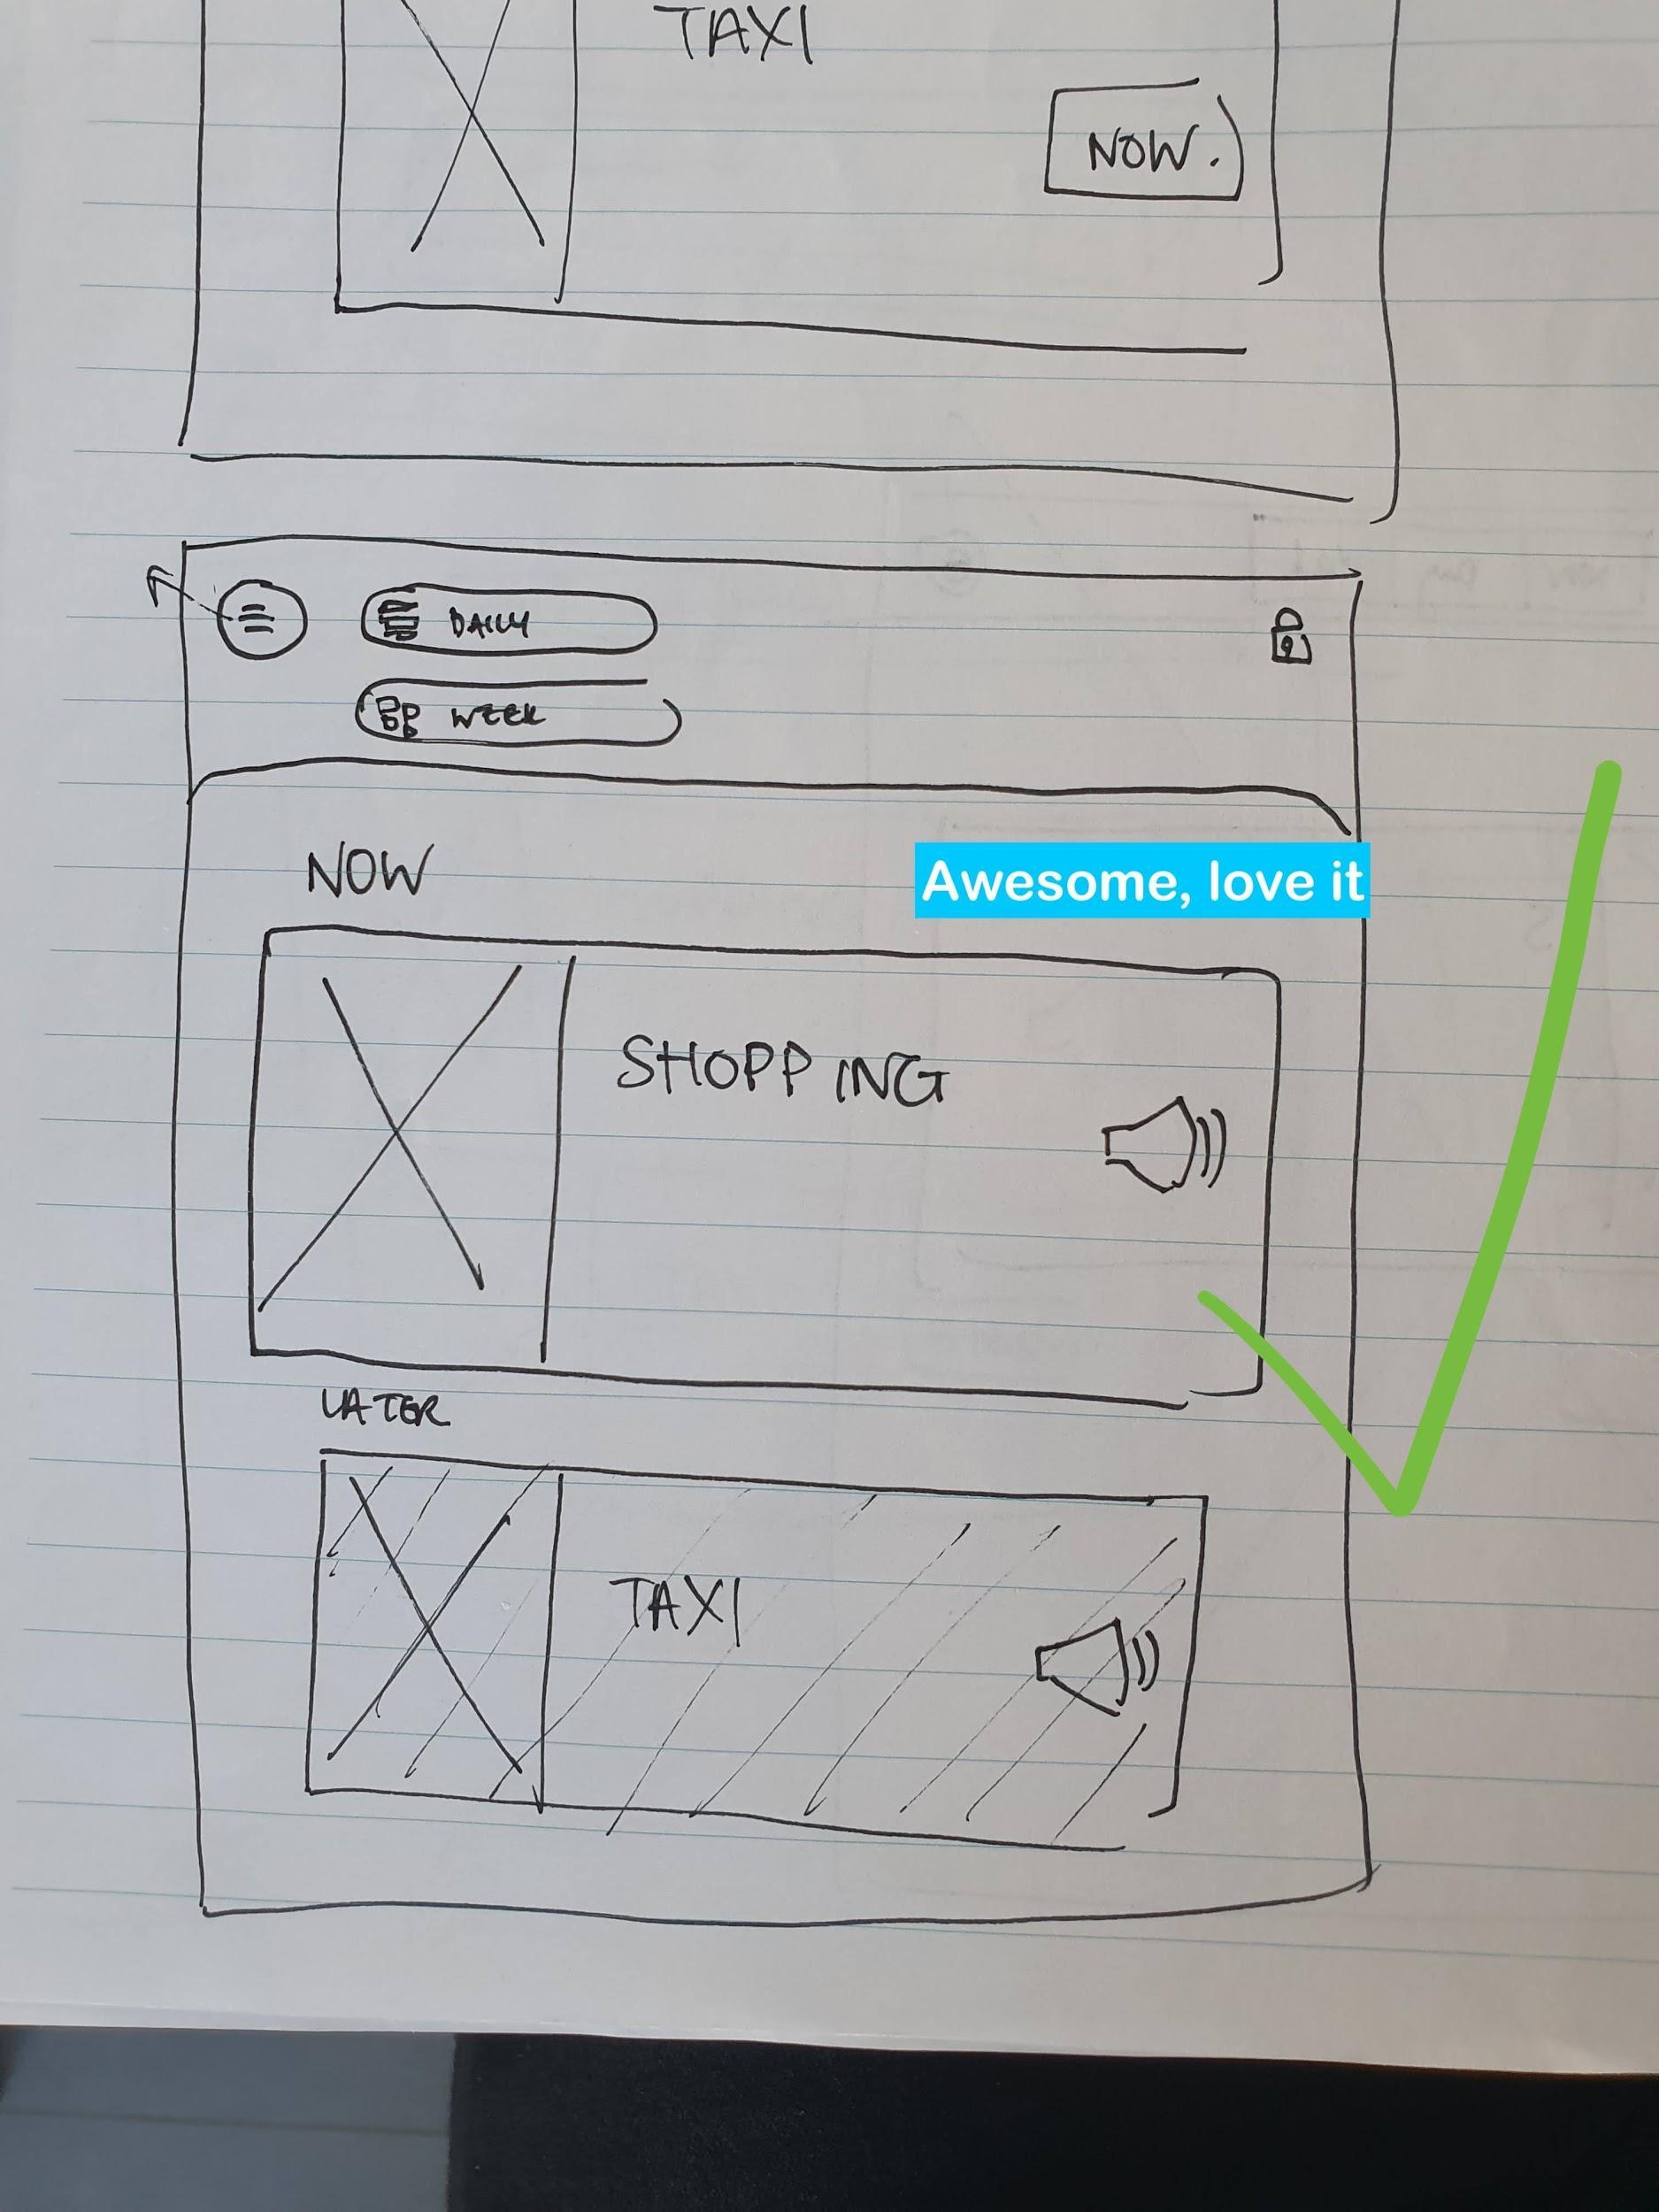 TAXI
NOW.
DAILY
WEEK
NOW
Awesome, love it
SHOPPING
LATER
TAXI